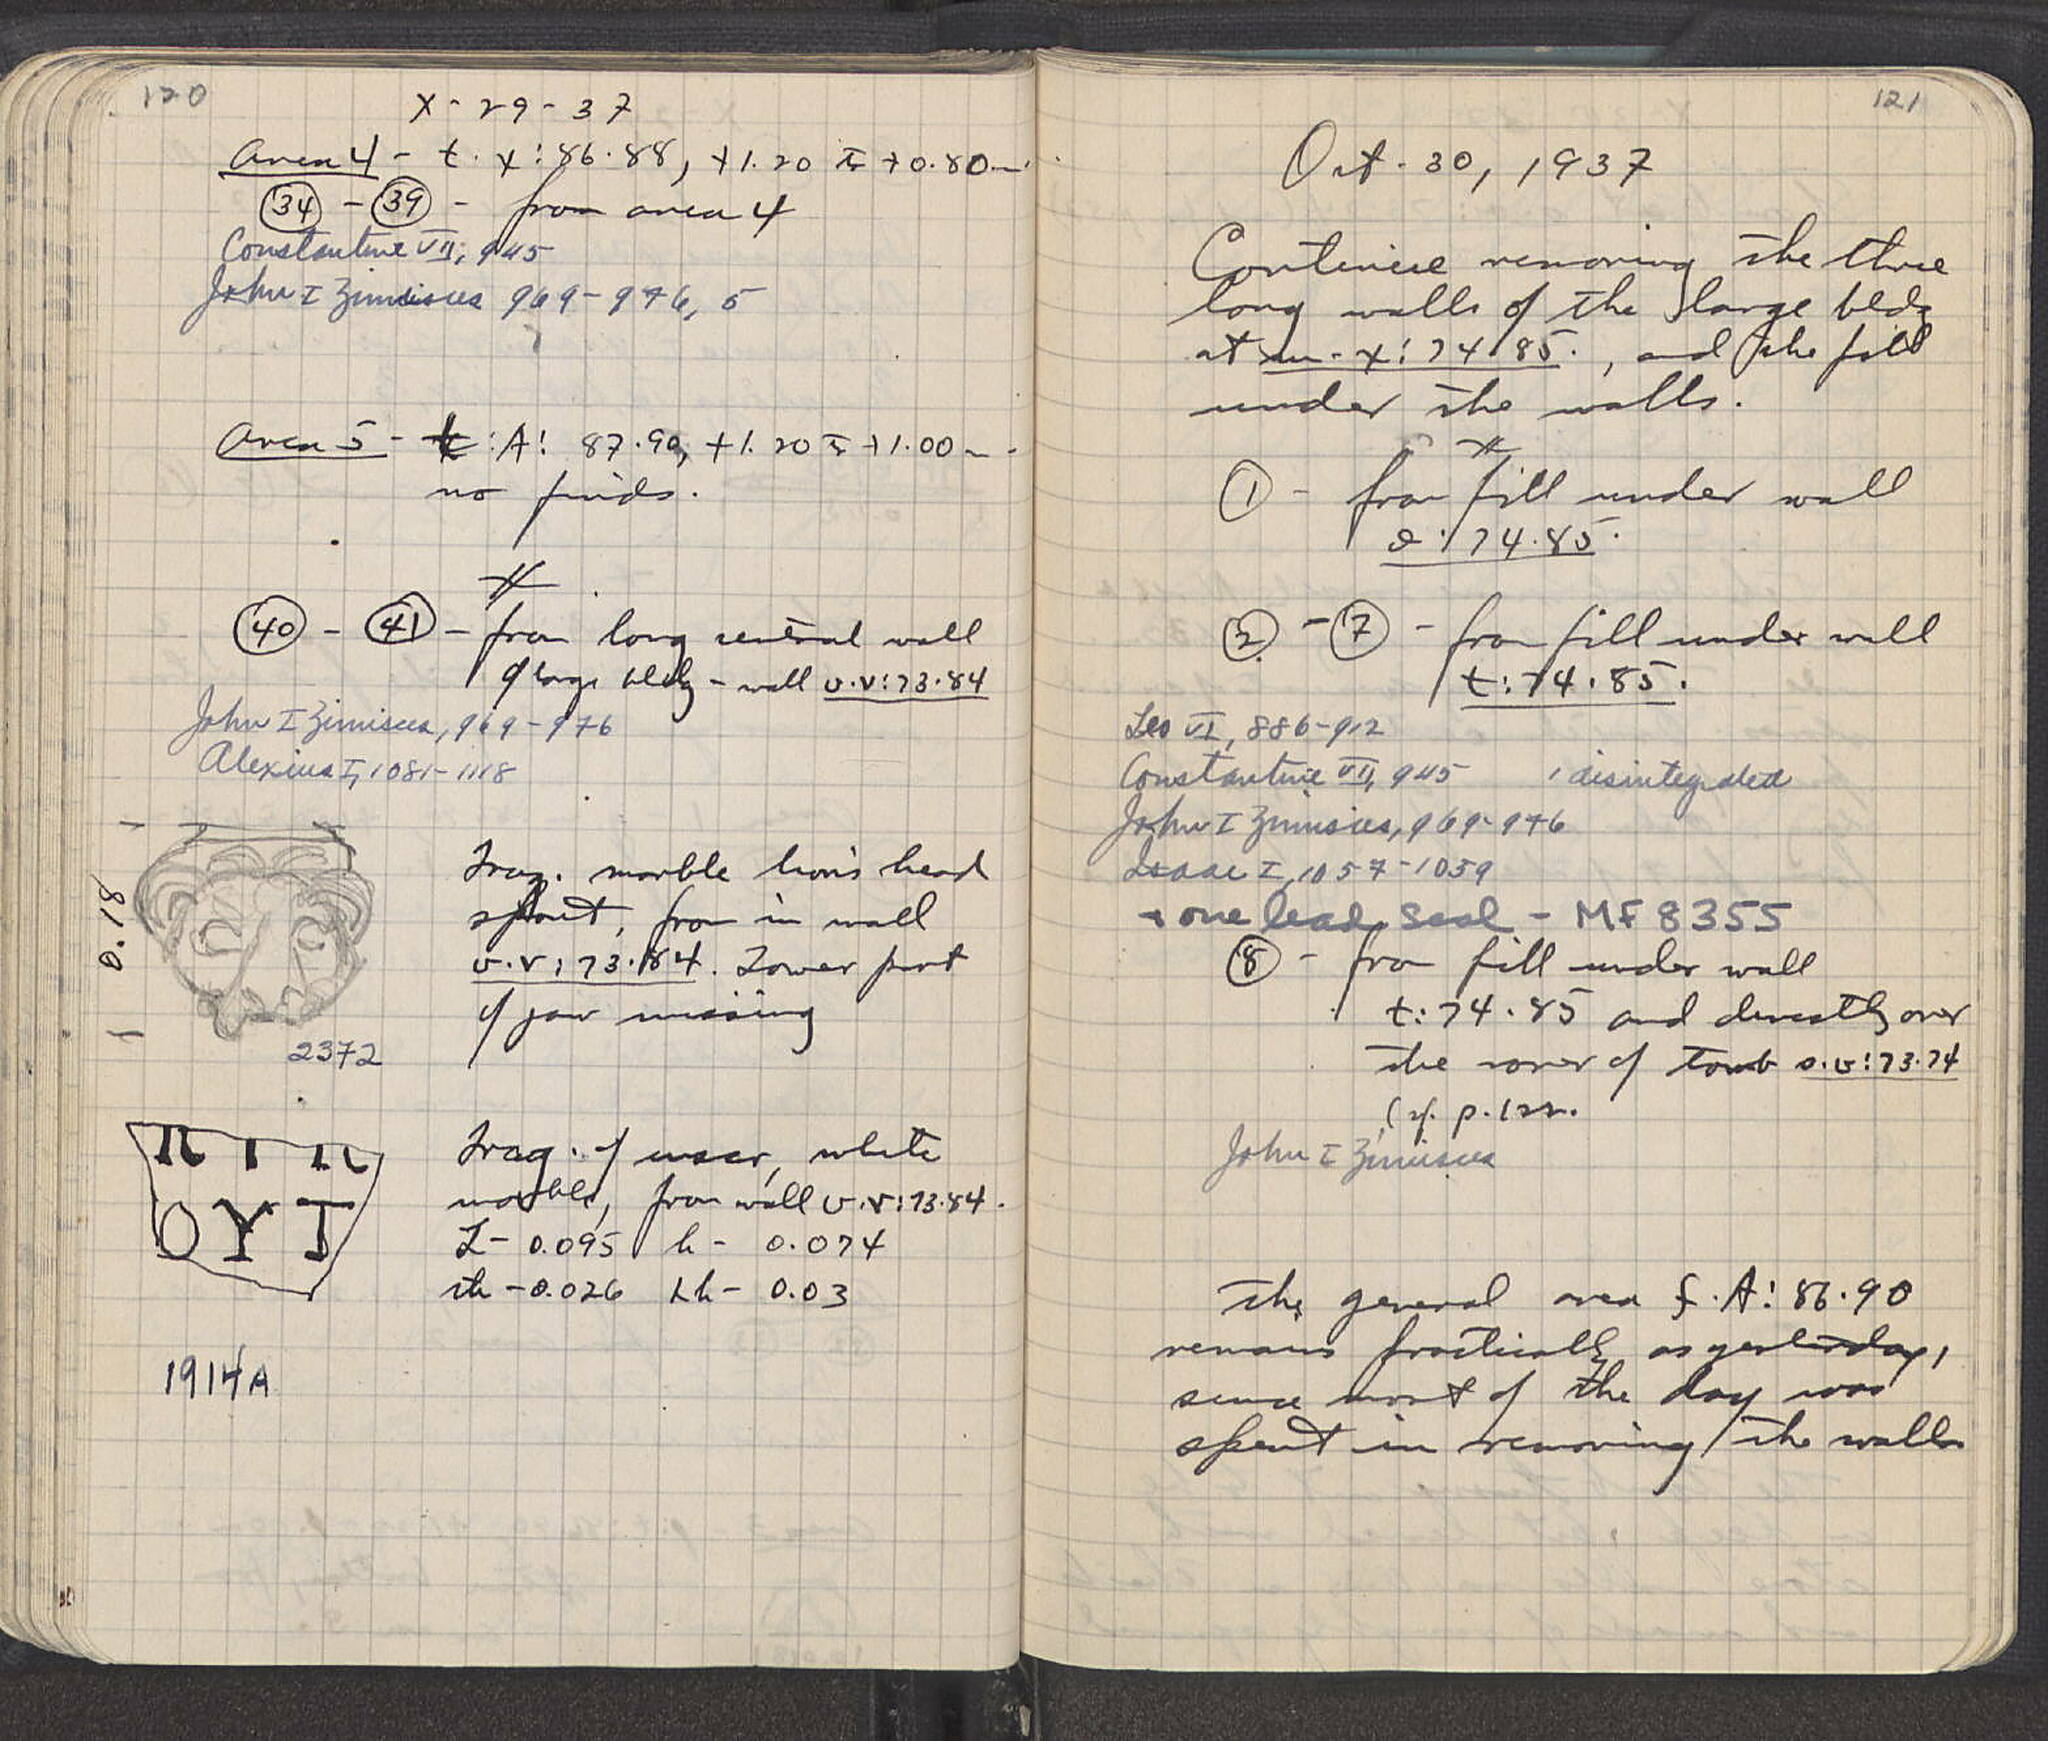 120
X-29-37
Area 4 - t. x: 86.88, +1.20 to +0.80m.
34 - 39 - from area 4
Constantine VII, 945
John I Zimisces 969-976, 5
Area 5 - :A: 87.90, +1.20 to +1.00m.
no finds.
40 - 41 - from long central wall
of large bldg - wall υ.ν:73.84
John I Zimisces, 969-976
Alexius I, 1081-1118
0.18
Frag. marble lion's head
spout, from in wall
υ.ν:73.84. Lower part
of jaw missing
2372
Frag. of inscr, white
marble, from wall υ.ν:73.84.
L- 0.095 h- 0.074
th -0.026 Lh- 0.03
ΟΥΤ
1914A
121
Oct. 30, 1937
Continue removing the three
long walls of the large bldg
at x: 74.85., and the fill
under the walls.
1 - from fill under wall
:74.85.
2 - 7 - from fill under wall
t:74.85.
Leo VI, 886-912
Constantine VII, 945 1 disintegrated
John I Zimisces, 969-976
Isaac I, 1057-1059
+ one lead seal - MF 8355
8 - from fill under wall
t:74.85 and directly over
the cover of tomb σ.υ:73.74
(cf. p. 122.
John I Zimisces
The general area ξ.A: 86.90
remains practically as yesterday,
since most of the day was
spent in removing the walls